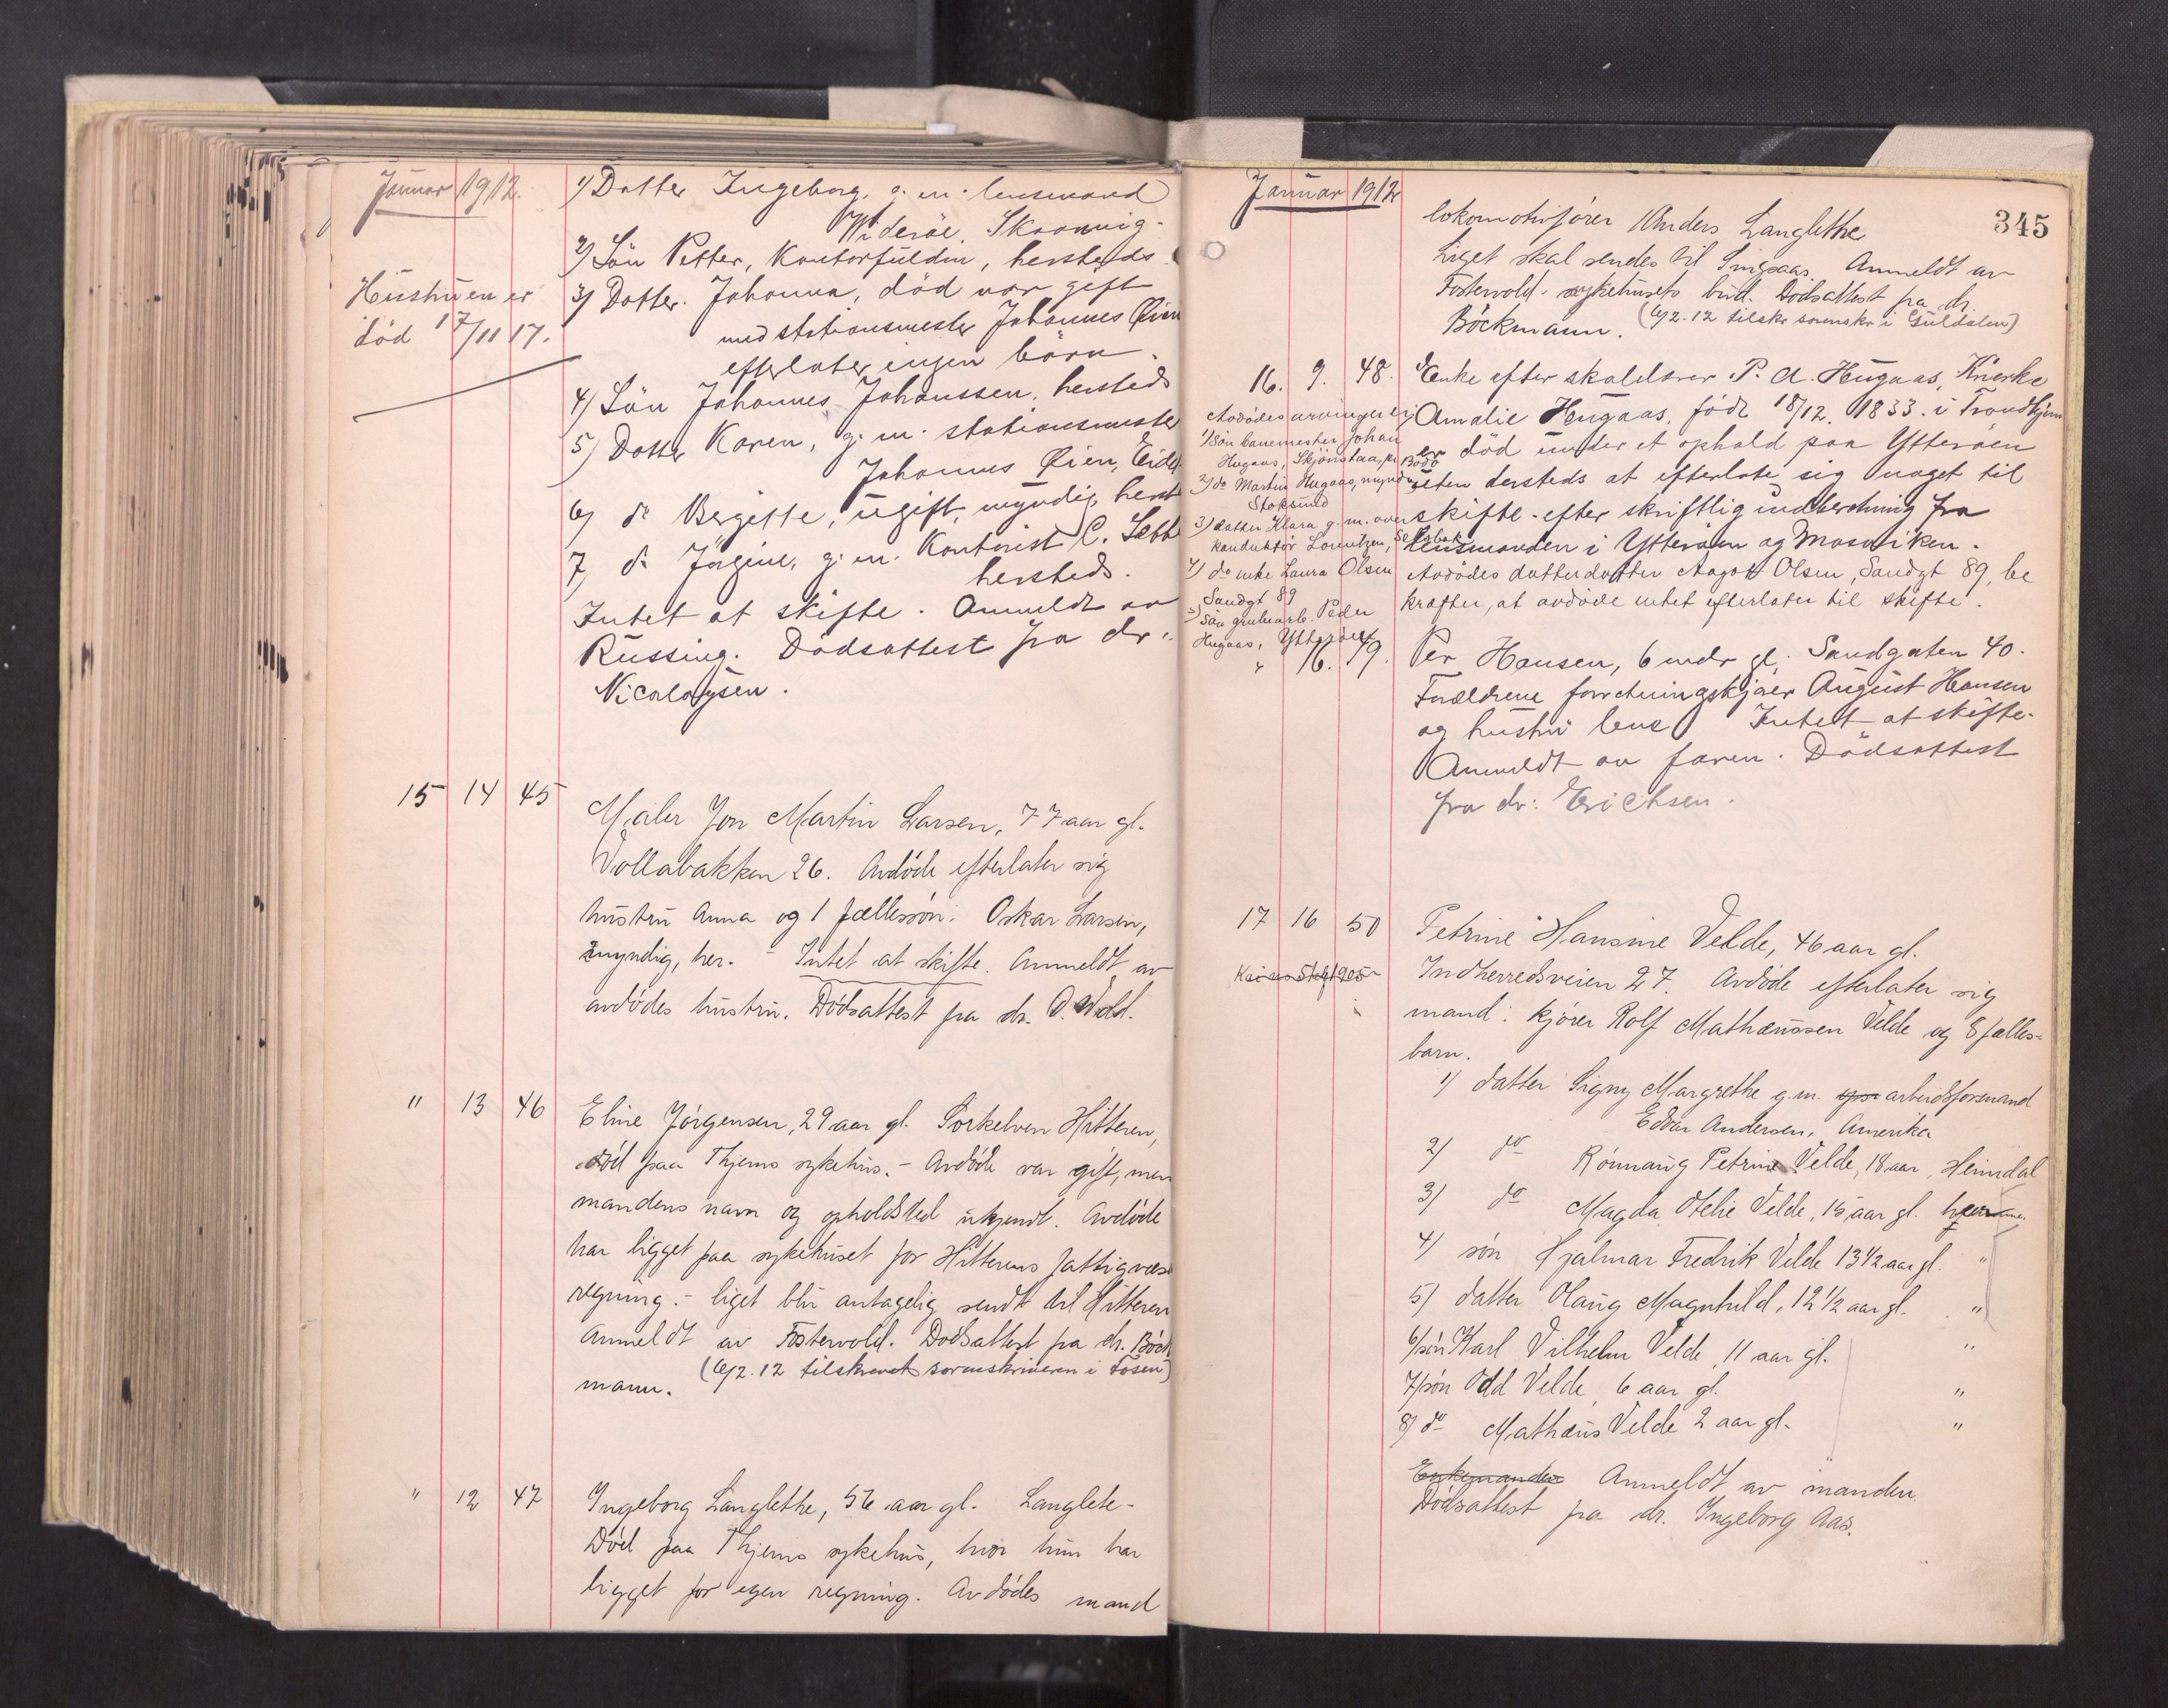 Januar 1912.
1) Datter Ingeborg, g. m. lensmand
Wideröe, Skaanvig.
2) Sön Petter, Kontorfuldm, hersteds
3) Datter Johanna, död var gift
med stationsmester Johannes Øien
efterlater ingen börn.
4) Sön Johannes Johanssen, hersteds
5) Datter Karen, g. m. stationsmester
Johannes Øien, Eids
6) do Bergitte, ugift, myndig, herst
7) do Jörgine, g. m. Kontorist C. Sætt
hersteds.
Intet at skifte. Anmeldt av
Russing. Dödsattest fra dr.
Nicolaysen.
Hustruen er
död 17/11 17.
15 14 45
Maler Jon Martin Larsen, 77 aar gl.
Vollabakken 26. Avdöde efterlater sig
hustru Anna og 1 fællessön: Oskar Larsen,
myndig, her. - Intet at skifte. Anmeldt av
avdödes hustru. Dödsattest fra dr.
" 13 46
Eline Jörgensen, 29 aar gl. Hitteren,
död paa Thjems sykehus. - Avdöde var gift, men
mandens navn og opholdsted ukjendt. Avdöde
har ligget paa sykehuset for Hitterens fattigvæs
regning. - Liget blir antagelig sendt til Hitteren
Anmeldt av Fostervold. Dödsattest fra dr. Böck
mann. (6/2. 12 tilskrevet sorenskriveren i Fosen)
" 12 47
Ingeborg Langlethe, 56 aar gl. Langlete.
Död paa Thjems sykehus, hvor hun har
ligget for egen regning. Avdödes mand
Januar 1912
345
lokomotivförer Anders Langlethe
Liget skal sendes til Singsaas. Anmeldt av
Fostervold. sykehusets bud. Dödsattest fra dr.
Böckmann. (6/2. 12 tilskr sorenskr i Guldalen)
16. 9. 48.
Enke efter skoldlærer P. A. Hugaas,
Amalie Hugaas, födt 18/12. 1833. i Trondhjem
er död under et ophold paa Ytteröen
uten dersteds at efterlate sig noget til
skifte. efter skriftlig indberetning fra
lensmanden i Ytteröen og Mosviken.
Avdödes datterdatter Aagot Olsen, Sandgt 89, be
kræfter, at avdöde intet efterlater til skifte.
Avdödes arvinger er:
1) sön banemester Johan
Hugaas, Skjönstaa, pr Bodö
2) do Martin Hugaas, myndig
Stoksund
3) datter Klara g. m. over
konduktör Lorentzen, Selsbak
4) do enke Laura Olsen
Sandgt 89
5) Sön grubearb. Peder
Hugaas, Ytteröen
" 16. 49.
Per Hansen, 6 mdr gl, Sandgaten 40.
Forældrene forretningskjörer August Hansen
og hustru Intet at skifte.
Anmeldt av faren. Dödsattest
fra dr: Erichsen.
17 16 50
Petrine Hansine Velde, 46 aar gl.
Indherredsveien 27. Avdöde efterlater sig
mand: kjörer Rolf Mathæussen Velde og 8 fælles-
barn.
1) datter Signy Margrethe g.m. arbeidsformand
Edvar Andersen, Amerika
2) do Rönnaug Petrine Velde, 18 aar, Heimdal
3) do Magda Otelie Velde, 15 aar gl. hjemme
4) sön Hjalmar Fredrik Velde 13 1/2 aar gl. "
5) datter Olaug Magnhild, 12 1/2 aar gl. "
6) sön Karl Vilhelm Velde, 11 aar gl. "
7) sön Odd Velde, 6 aar gl. "
8) do Mathæus Velde 2 aar gl. "
Enkemanden Anmeldt av manden.
Dödsattest fra dr. Ingeborg Aas.